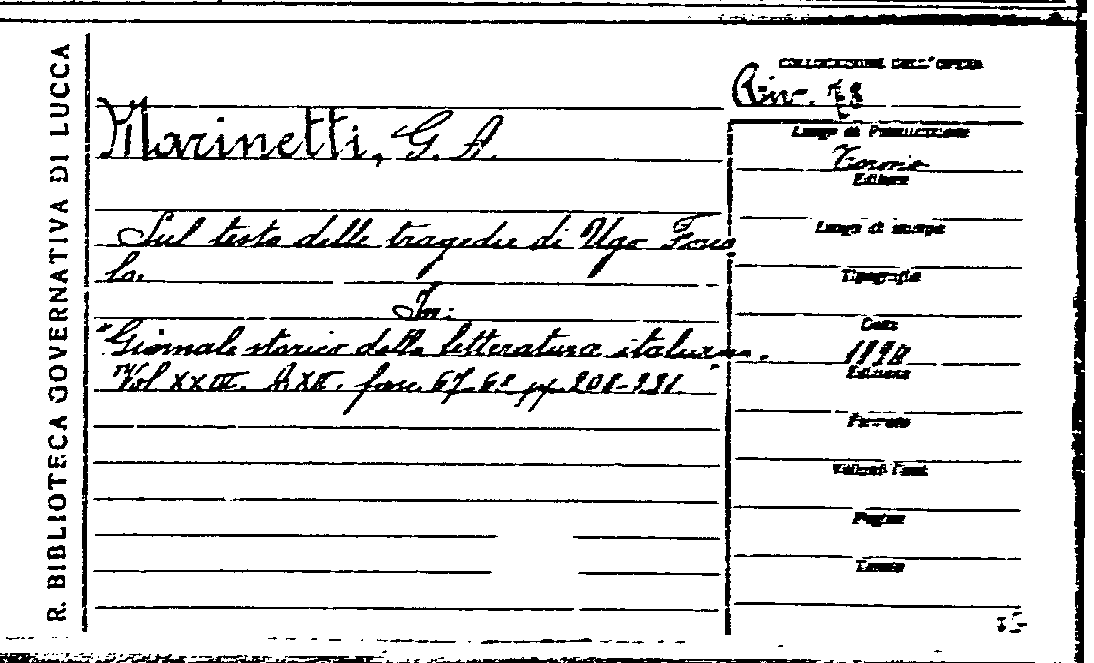 R. BIBLIOTECA GOVERNATIVA DI LUCCA
COLLOCAZIONE DELL'OPERA
Riv.
Marinetti, G. A.
Luogo di Pubblicazione
Torino
Editore
Sul testo delle tragedie di Ugo Fosco
lo.
Luogo di stampa
Tipografia
In:
"Giornale storico della letteratura italiana.
Data
Vol XXIII. A XII. fasc. 67-68 pp.
Edizione
Formato
Volumi
Pagine
Tavole